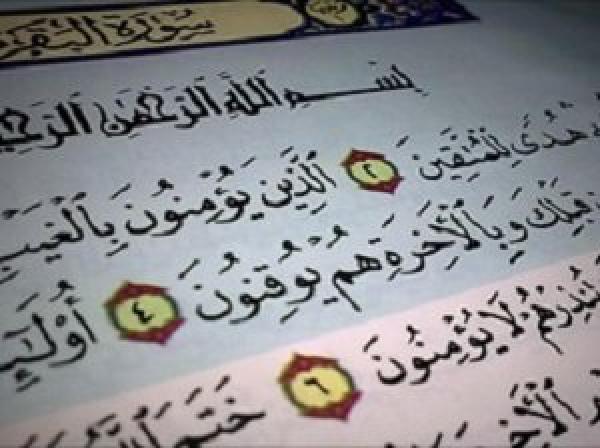 سُورَةُ الْبَقَرَةِ
بِسْمِ اللَّهِ الرَّحْمَٰنِ الرَّحِيمِ
هُدًى لِّلْمُتَّقِينَ ٢ الَّذِينَ يُؤْمِنُونَ بِالْغَيْبِ
قَبْلِكَ وَبِالْآخِرَةِ هُمْ يُوقِنُونَ ٤ أُولَٰئِ
تُنذِرْهُمْ لَا يُؤْمِنُونَ ٦ خَتَمَ اللَّهُ